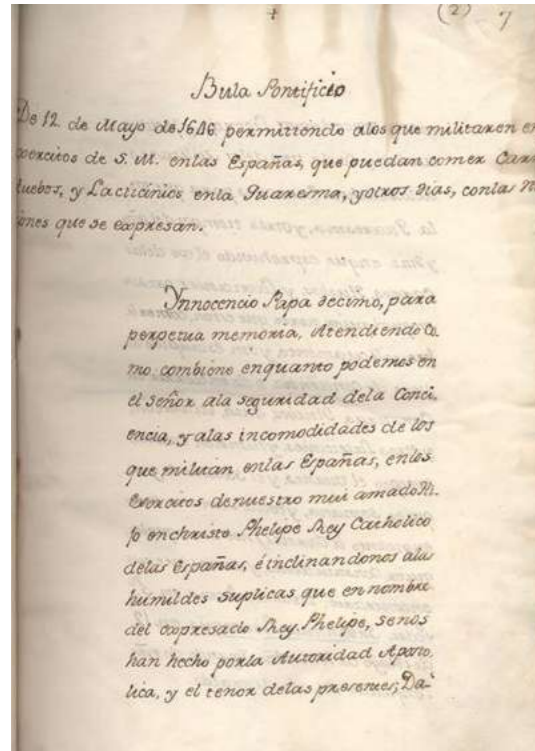 +
(2) 7
Bula Pontificio
De 12 de Mayo de 1646 permittendo alos que militaren en
exercitos de S. M. enlas Españas, que puedan comer Carn
huebos, y Lacticinios enla Quaresma, yotros dias, conlas
iones que se expresan.
Ynnocencio Papa decimo, para
perpetua memoria, Atendiendo Co-
mo combiene enquanto podemos en
el Señor ala seguridad dela Conci-
encia, y alas incomodidades de los
que militan enlas Españas, enlos
Exercitos denuestro mui amado Hi-
jo enchristo Phelipe Rey Catholico
delas Españas, é inclinandonos alas
humildes suplicas que en nombre
del expresado Rey Phelipe, senos
han hecho porla Autoridad Aposto-
lica, y el tenor delas presentes, Da-